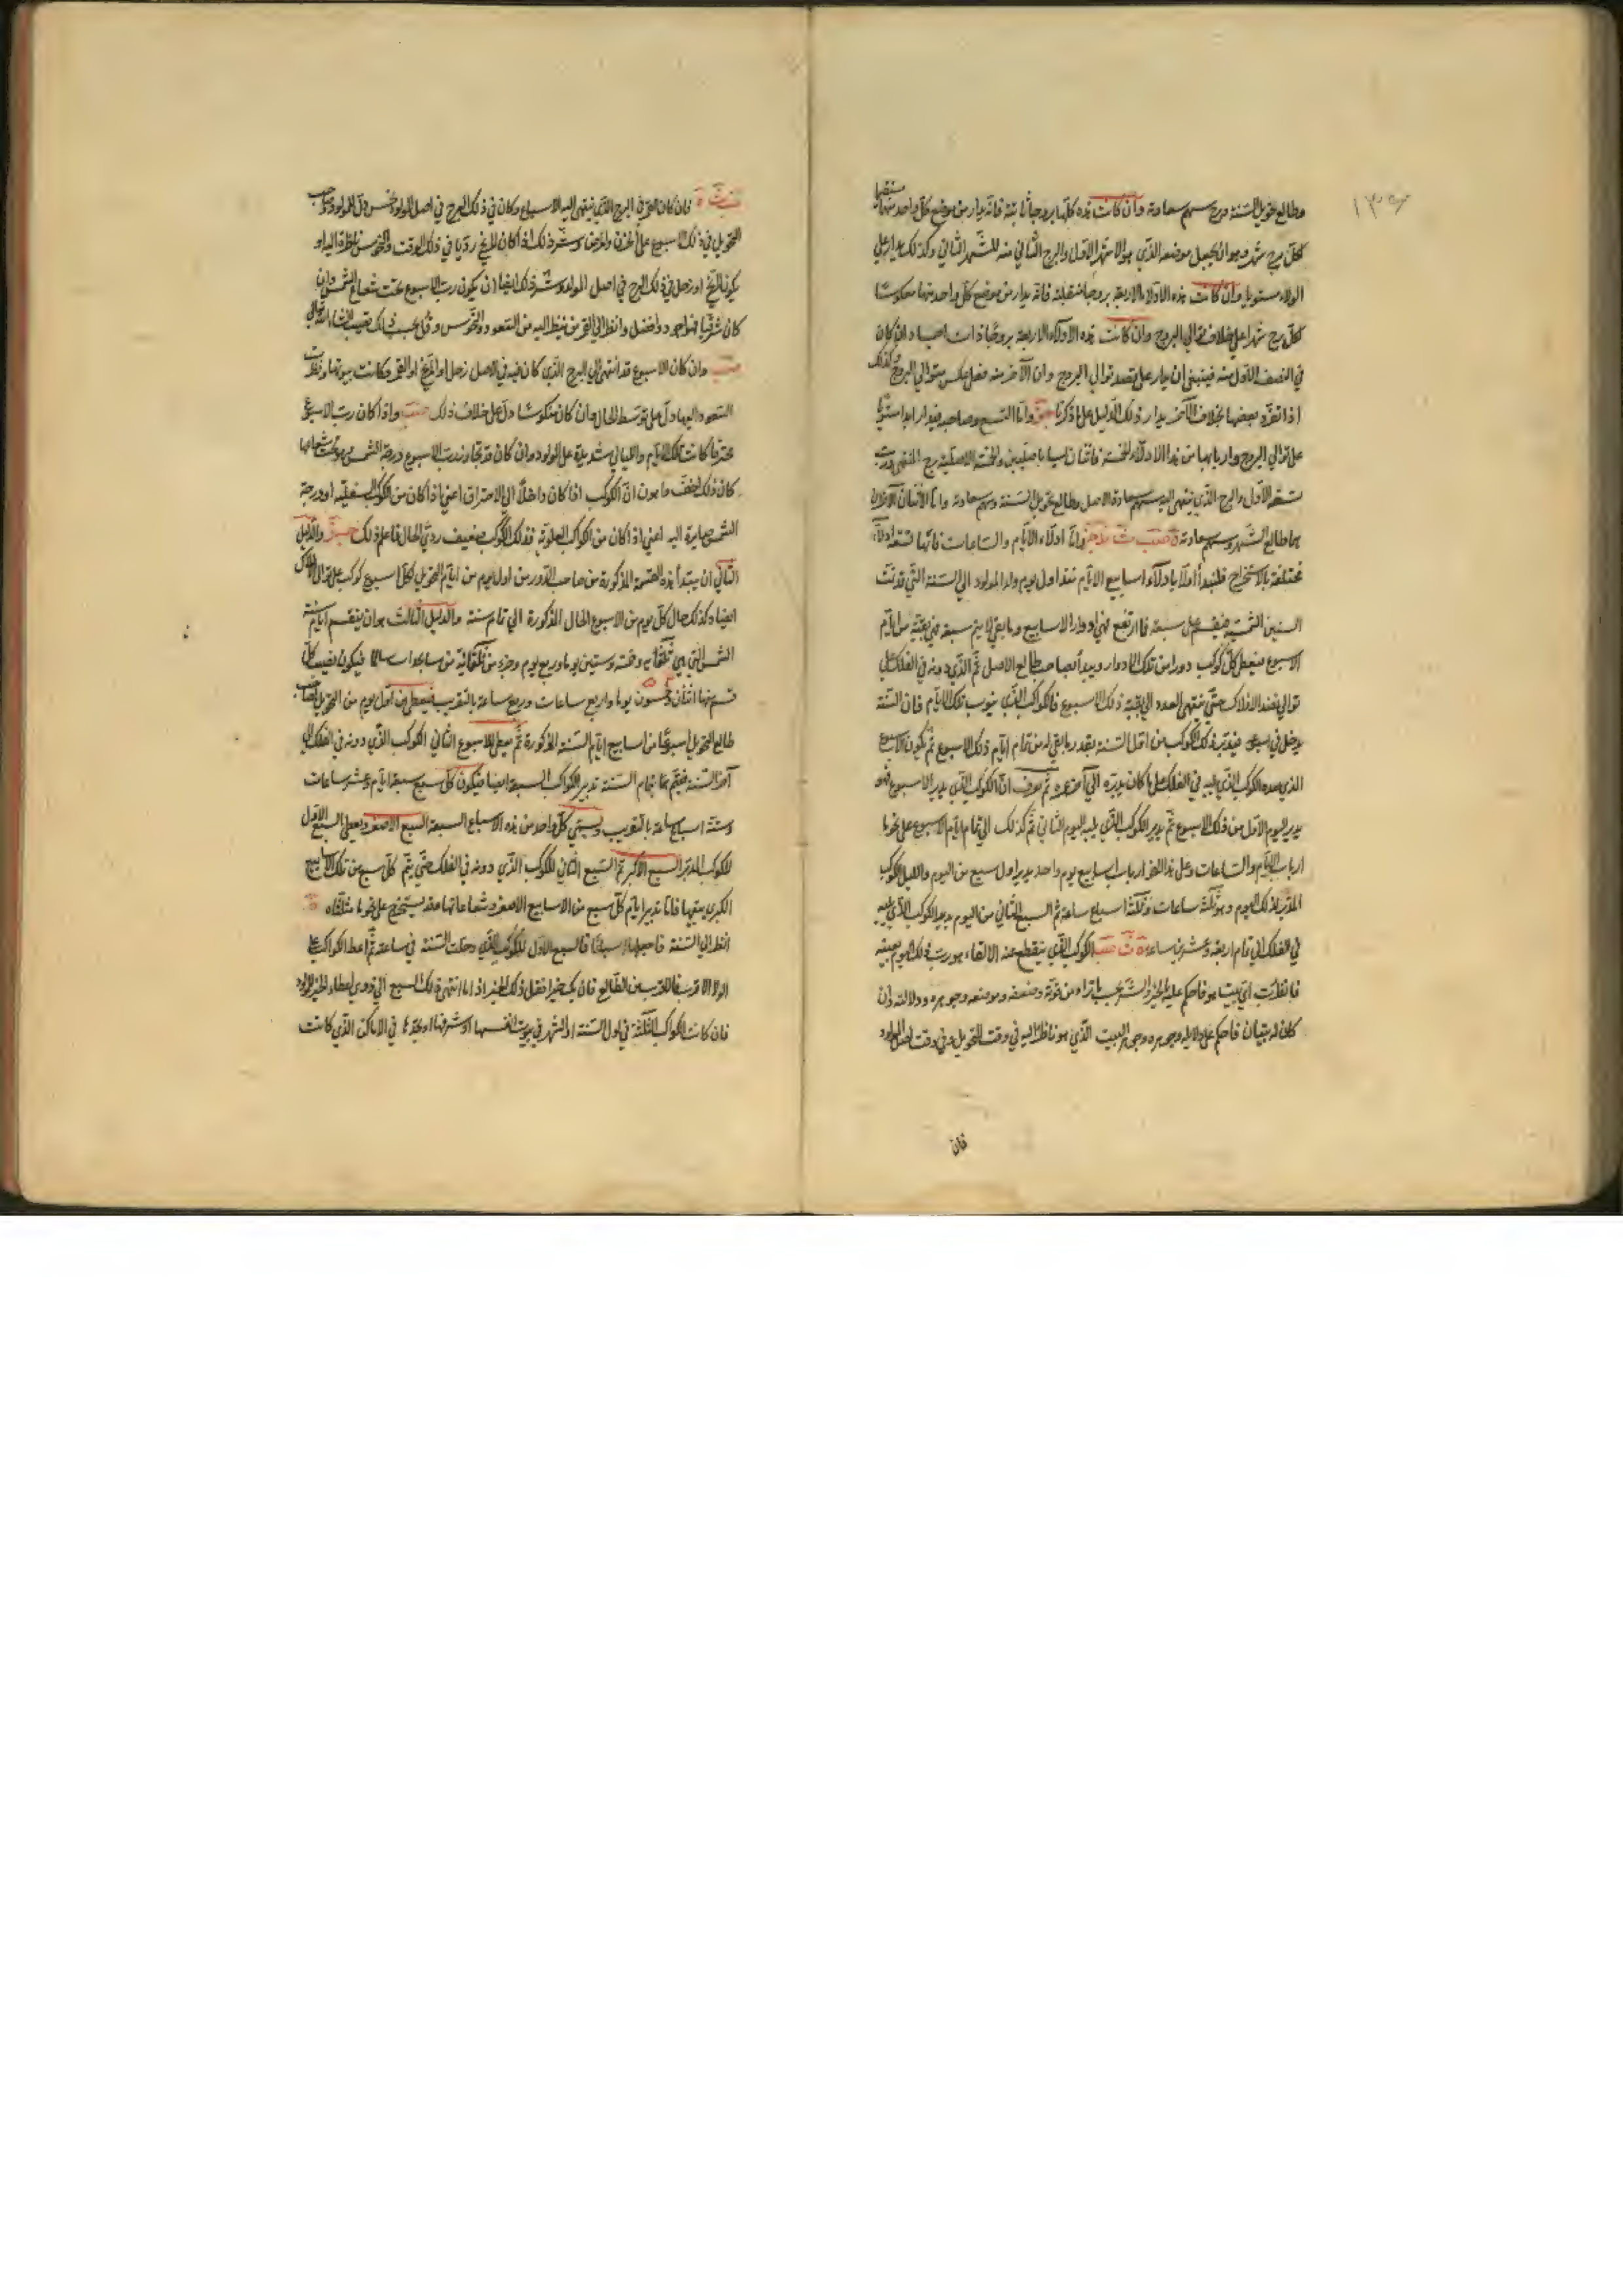 ١٣٩
وطالع تحويل السنة وبرج سهم سعادته وان كانت هذه كلها بروجا ثابتة فانه يدار من موضع كل واحد منها
لكل برج شهر وهو ان يجعل موضعه الذي هو الا شهر الاول والبرج الثاني منه للشهر الثاني وكذلك يدار على
الولاء مستويا وان كانت هذه الادلاء الاربعة بروجا منقلبة فانه يدار من موضع كل واحد منها معكوسا
لكل برج شهرا على خلاف توالي البروج وان كانت هذه الادلاء الاربعة بروجا ذات اجساد فان كان
في النصف الاول منه فينبغي ان يدار على قصد توالي البروج وان الآخر منه فعل عكس توالي البروج وكذلك
اذا تفرد بعضها بخلاف الآخر يدار ذلك الدليل على ما ذكرنا واما التسع وصاحبه فيدار ابدا مستويا
على توالي البروج واربابها من هذا الادلاء الخمسة فاثنان ليسا باصليين والخمسة الاصلية برج المنتهى ورب
تسعه الاول والبرج الذي ينتهى اليه سهم سعادة الاصل وطالع تحويل السنة وسهم سعادته واما الاثنان الآخران
هما طالع الشهر وسهم سعادته واما ادلاء الايام والساعات فانها تسعة ادلاء
مختلفة بالاستخراج فلنبدأ اولا بادلاء اسابيع الايام نبتدا اول يوم ولد المولود الى السنة التي قد تمت
السنين الشمسية فيقسم على سبعة فما ارتفع فهي ادوار الاسابيع وما بقي لا يتم سبعة فهي بقية من ايام
الاسبوع فيعطى كل كوكب دورا من تلك الادوار ويبدأ بصاحب طالع الاصل ثم الذي دونه في الفلك على
توالي نضد الافلاك حتى ينتهى العدد الى بقية ذلك الاسبوع فالكوكب الذي ينوب تلك الايام فان السنة
يدخل في سبوعه فيدبر ذلك الكوكب من اول السنة بقدر ما بقي له من تمام ايام ذلك الاسبوع ثم يكون الاسبوع
الذي بعده الكوكب الذي يليه في الفلك على ما كان يدبره الى آخر عمره ثم يعرف ان الكوكب الذي يدبر الاسبوع فهو
يدبر اليوم الاول من ذلك الاسبوع ثم يدبر الكوكب الذي يليه اليوم الثاني ثم كذلك الى تمام ايام الاسبوع على نحو ما
ارباب الايام والساعات وعلى هذا النحو ارباب اسابيع يوم واحد يدبر اول سبع من اليوم والليل الكوكب
المدبر لذلك اليوم وهو ثلثة ساعات وثلثة اسباع ساعة ثم السبع الثاني من اليوم يدبر الكوكب الذي يليه
في الفلك الى تمام اربعة وعشرين ساعة الكوكب الذي ينقطع عنه الالقاء هو رب ذلك اليوم بعينه
فانظر رب اي بيت هو فاحكم عليه بالخير والشر بحسب ما تراه من قوته وضعفه وموضعه وجوهره ودلالته وان
كان له بيتان فاحكم على دلايله وجوهره وجوهر البيت الذي هو ناظر اليه في وقت التحويل وفي وقت اصل المولود
فان
فان كان القمر في البرج الذي ينتهى اليه الاسبوع وكان في ذلك البرج في اصل المولود نحس دل للمولود
التحويل في ذلك الاسبوع على الحزن والمرض وشر ذلك اذا كان المريخ رديا في ذلك الوقت والنحوس ناظرة اليه او
يكون المريخ او زحل في ذلك البرج في اصل المولد وشر ذلك ايضا ان يكون رب الاسبوع تحت شعاع الشمس وان
كان شرقيا فهو اجود وافضل وانظر الى القمر من ينظر اليه من السعود والنحوس وقل بحسب ذلك تصيب ان شاء الله تعالى
وان كان الاسبوع قد انتهى الى البرج الذي كان فيه في الاصل زحل او المريخ او القمر وكانت بيوتها ونظرت
السعود اليها دل على توسط الحال وان كان منكوسا دل على خلاف ذلك واذا كان رب الاسبوع
محترقا كانت تلك الايام والليالي شديدة على المولود وان كان قد تجاوز رب الاسبوع درجة الشمس وهو تحت شعاعها
كان ذلك اخف ما يكون ان الكوكب اذا كان داخلا الى الاحتراق اعني اذا كان من الكواكب السفلية او درجة
الشمس صايرة اليه اعني اذا كان من الكواكب العلوية فذلك الكوكب ضعيف ردي الحال فاعلم ذلك والدليل
الثاني ان يبتدأ بهذه القسمة المذكورة من صاحب الدور من اول يوم من ايام التحويل لكل اسبوع كوكب على توالي الافلاك
ايضا وكذلك حال كل يوم من الاسبوع الحال المذكورة الى تمام سنة والدليل الثالث هو ان ينقسم ايام سنة
الشمس التي هي ثلثمائة وخمسة وستين يوما وربع يوم وجزء من ثلثمائة من ساعة اسباعا فيكون نصيب كل
قسم منها اثنان وخمسون يوما واربع ساعات وربع ساعة بالتقريب فيعطى من اول يوم من التحويل لصاحب
طالع التحويل اسبوعا من اسابيع ايام السنة المذكورة ثم يعطى للاسبوع الثاني الكوكب الذي دونه في الفلك الى
آخر السنة فيتم بها تمام السنة تدبير الكواكب السبعة ايضا فيكون كل سبع سبعة ايام وعشر ساعات
وستة اسباع ساعة بالتقريب ويسمى كل واحد من هذه الاسباع السبعة السبع الاصغر ويعطى السبع الاول
للكوكب المدبر السبع الاكبر ثم السبع الثاني للكوكب الذي دونه في الفلك حتى يتم كل سبع من تلك الاسابيع
الكبرى سبعها فاما تدبير ايام كل سبع من الاسابيع الاصغر وشعاعاتها فقد يستخرج على نحو ما مثلناه
انظر الى السنة فاجعلها اسبوعا فالسبع الاول للكوكب الذي دخلت السنة في ساعته ثم اعط الكواكب على
الولاء الاقرب فالاقرب من الطالع فان يكن خيرا فقل ذلك الخير اذا ما انتهى ذلك السبع الى ذوي اعطاء الخير للمولود
فان كانت الكواكب الثلثة في اول السنة او الشهر في بيوت انفسها او شرفها او بحدها في الاماكن الذي كانت